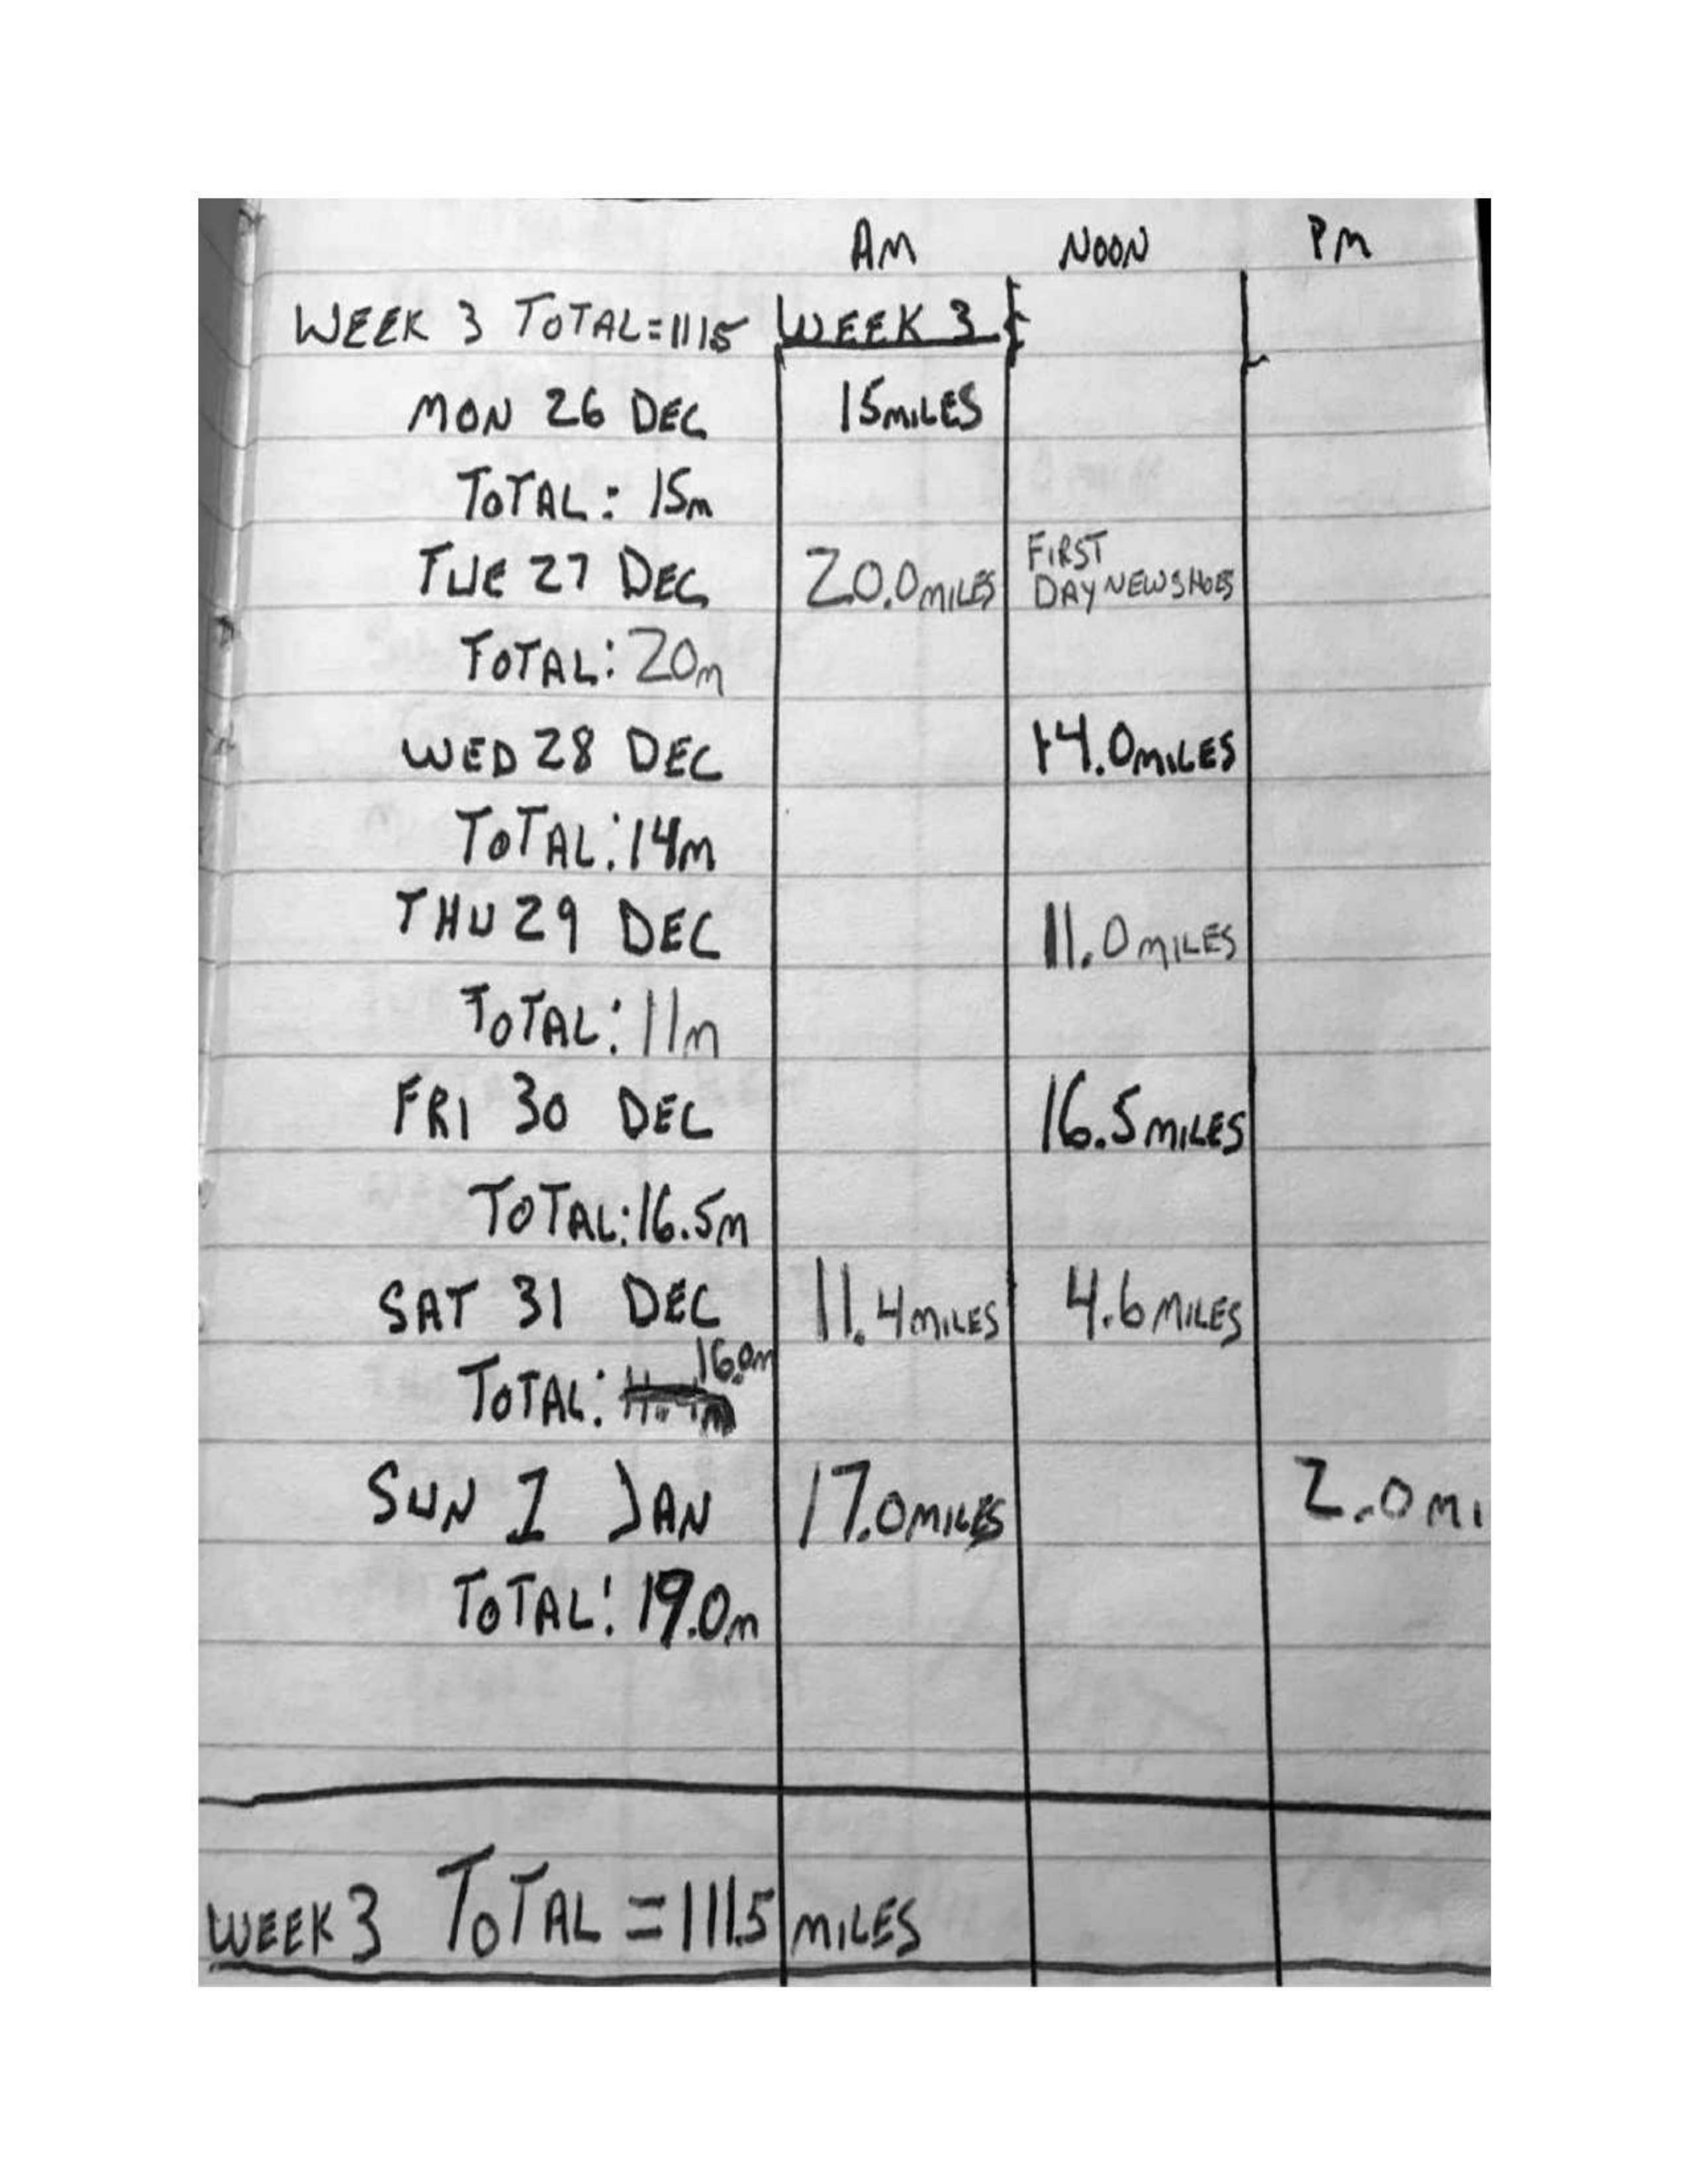 AM NOON PM
WEEK 3 TOTAL=1115 WEEK 3
MON 26 DEC 15MILES
TOTAL: 15m
TUE 27 DEC 20.0MILES FIRST DAY NEW SHOES
TOTAL: 20m
WED 28 DEC 14.0MILES
TOTAL: 14m
THU 29 DEC 11.0MILES
TOTAL: 11m
FRI 30 DEC 16.5MILES
TOTAL: 16.5m
SAT 31 DEC 11.4MILES 4.6MILES
TOTAL: 16.0m
SUN 1 JAN 17.0MILES 2.0MI
TOTAL: 19.0m
WEEK 3 TOTAL = 111.5 MILES